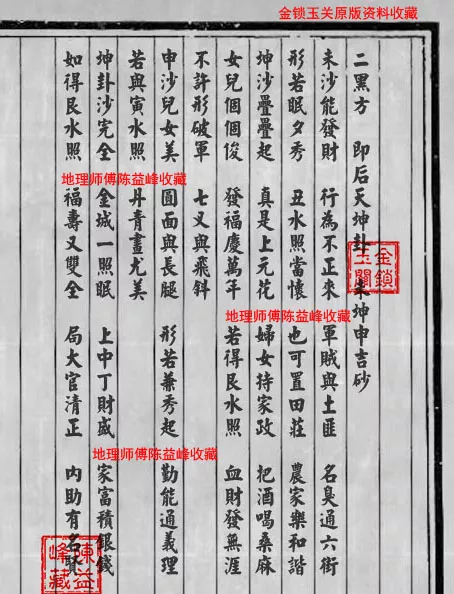 金锁玉关原版资料收藏
二黑方 即后天坤卦 未坤申吉砂
未沙能發財 行為不正來 軍賊與土匪 名臭通六街
形若眠夕秀 丑水照當懷 也可置田莊 農家樂和諧
坤沙疊疊起 真是上元花 婦女待家政 把酒喝桑麻
女兒個個俊 發福慶萬年 若得艮水照 血財發無涯
不許形破軍 七又與飛斜
申沙兒女美 圓面與長腿 形若兼秀起 勤能通義理
若與寅水照 丹青畫尤美
坤卦沙完全 金城一照眠 上中丁財盛 家富積銀錢
如得艮水照 福壽又雙全 局大官清正 內助有名
地理师傅陈益峰收藏
地理师傅陈益峰收藏
地理师傅陈益峰收藏
金鎖玉關
陳益峰藏